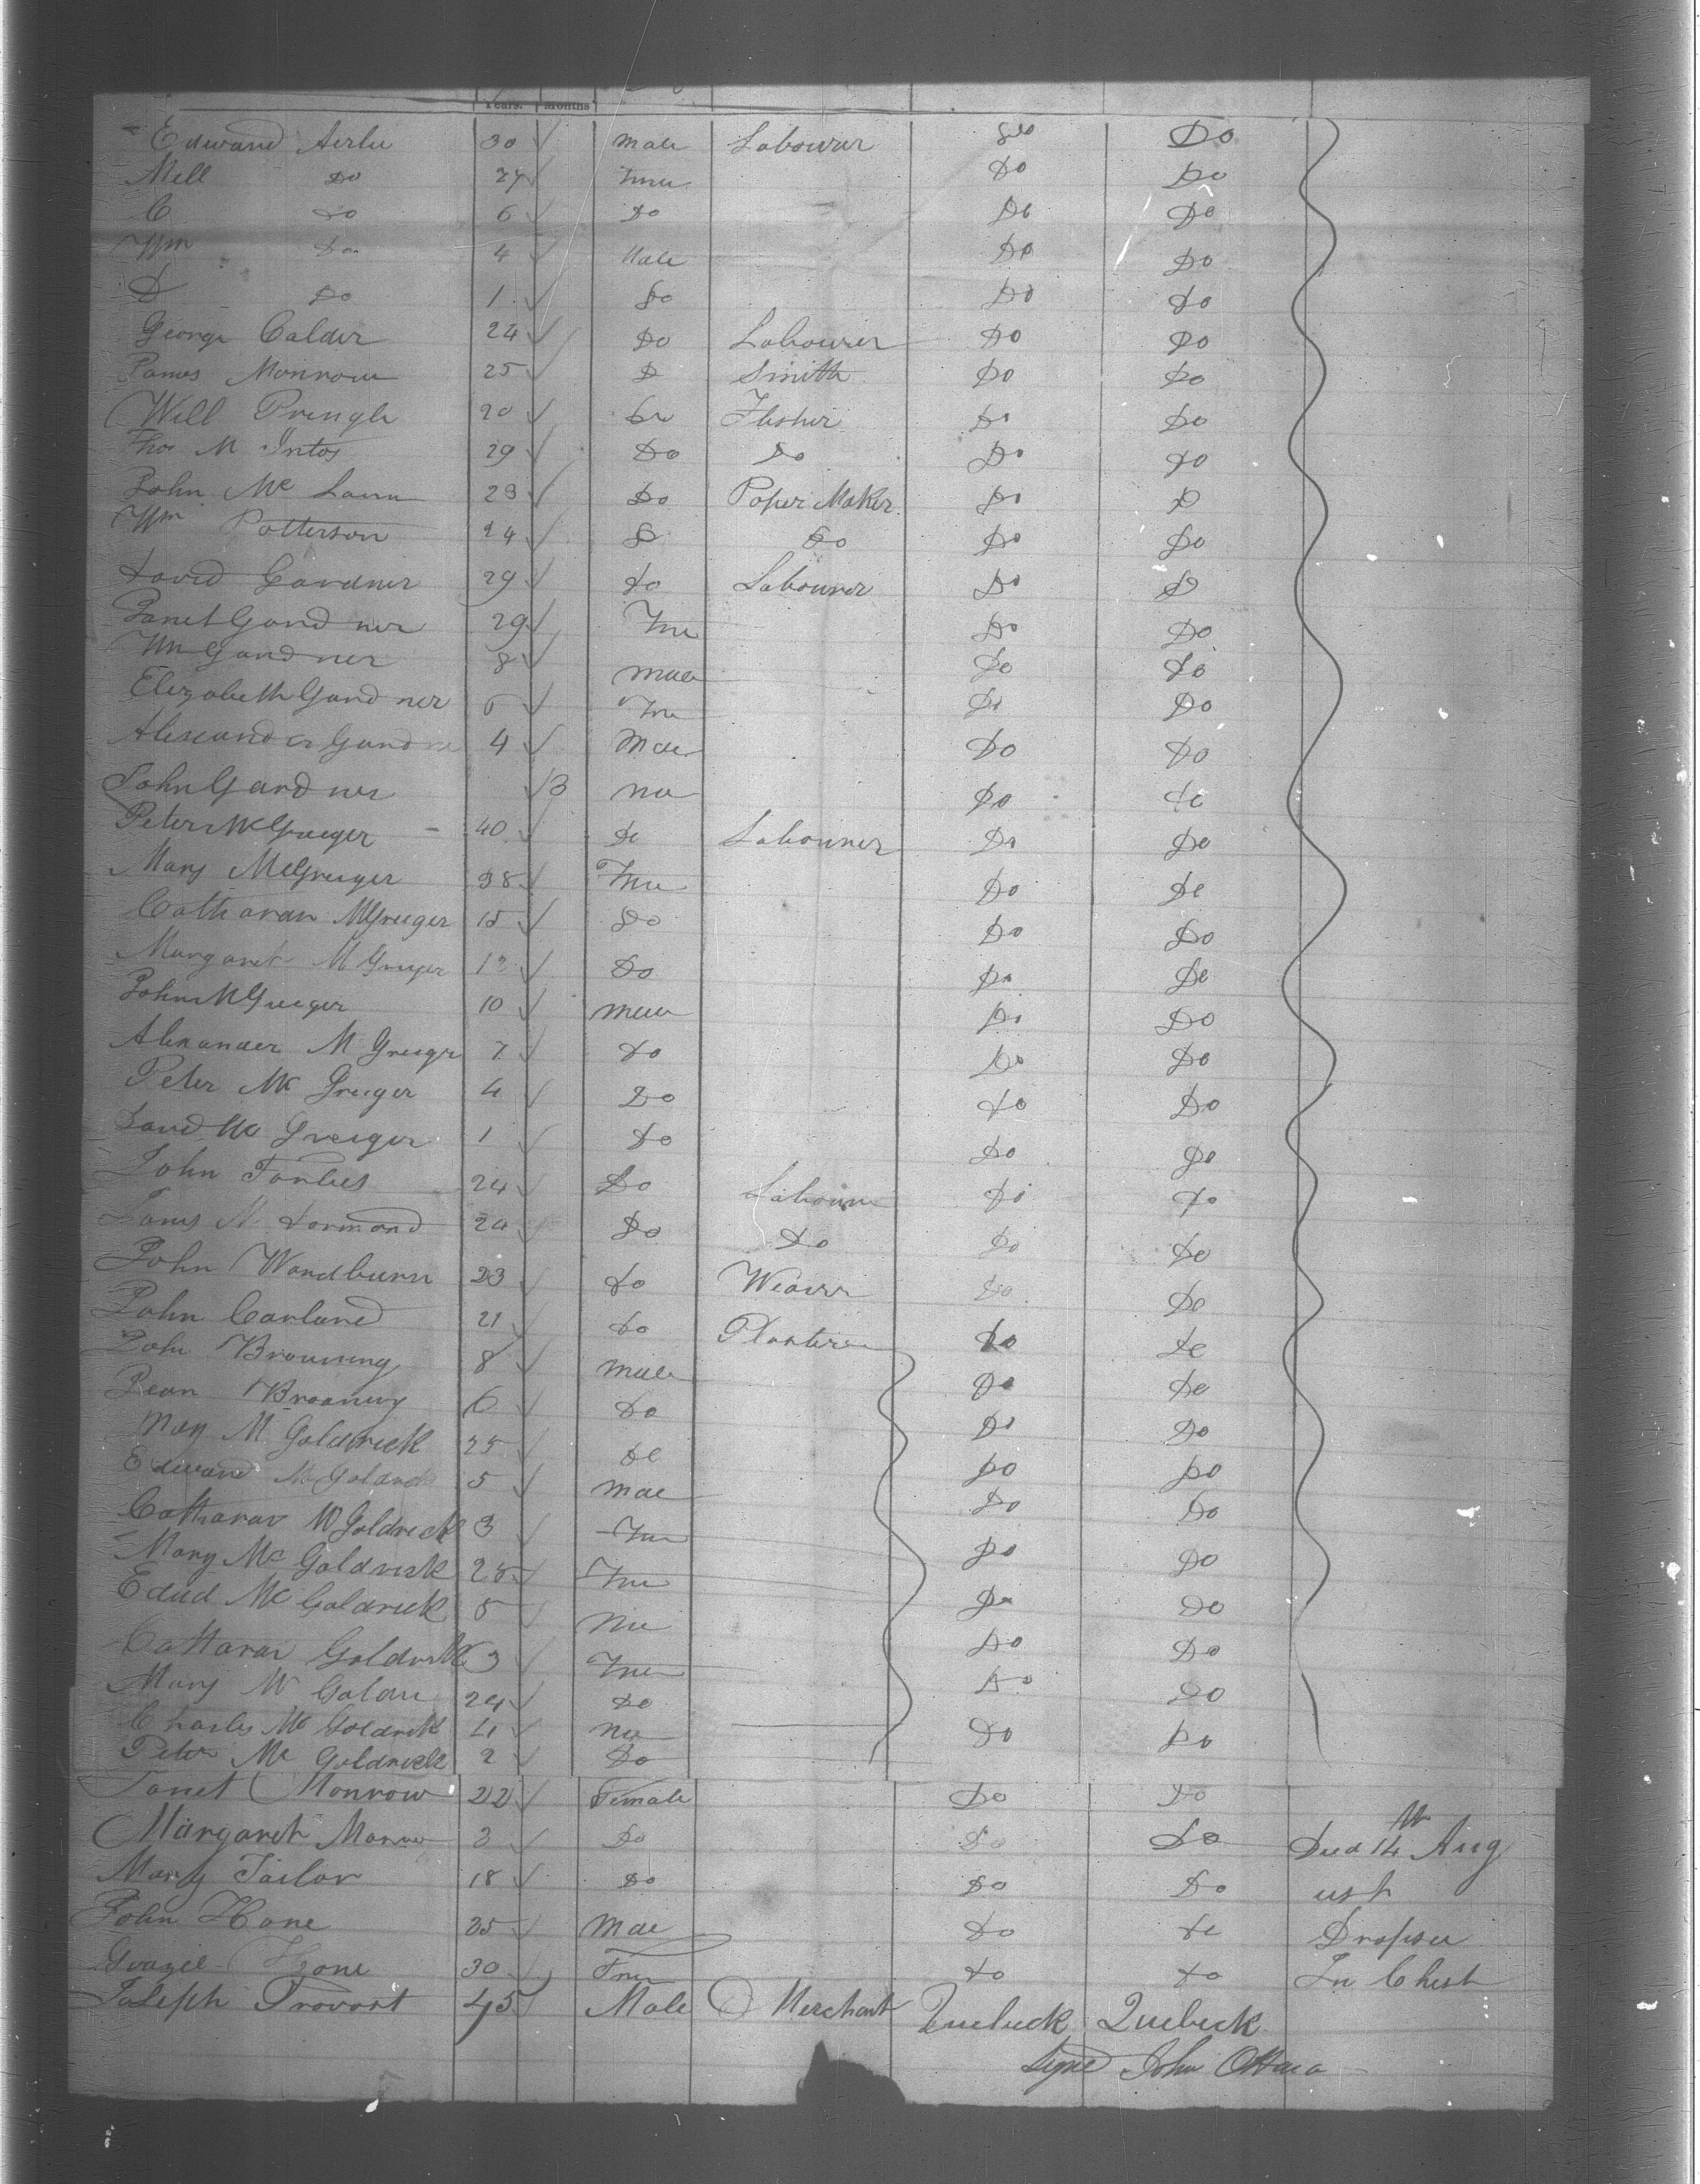 Years. Months
Edward Aerlie 30 male Labourer Do Do
Mell Do 27 Fme Do Do
C Do 6 Do Do Do
Wm Do 4 Male Do Do
D Do 1 Do Do Do
George Calder 24 Do Labourer Do Do
James Monrow 25 D Smith Do Do
Will Pringle 20 Do Flesher Do Do
Thos M Intos 29 Do Do Do Do
John Mc 23 Do Paper Maker Do D
Wm Patterson 24 D Do Do Do
David Gardner 29 Do Labourer Do D
Janet Gardner 29 Fme Do Do
Wm Gardner 8 mae Do Do
Elizabeth Gardner 6 Fme Do Do
Alexander Gardne 4 Mae Do Do
John Gardner 3 Do Do
Peter McGreeger 40 Do Labourer Do Do
Mary McGreeger 38 Fme Do Do
Catharan McGreeger 15 Do Do Do
Margaret M Greeger 12 Do Do Do
John McGreeger 10 mae Do Do
Alexander M Greeger 7 Do Do Do
Peter Mc Greeger 4 Do Do Do
David Mc Greeger 1 Do Do Do
John Forbes 24 Do Labourer Do Do
James M Dormond 24 Do Do Do Do
John Wardburn 23 Do Weaver Do Do
John Carland 21 Do Planterer Do Do
John Browning 8 male Do Do
Jean Browning 6 Do Do Do
Mary M Goldrick 25 Do Do Do
Edward Mc Goldrick 5 mae Do Do
Catharan Mc Goldrick 3 Fme Do Do
Mary Mc Goldrick 25 Fme Do Do
Edud Mc Goldrick 5 Do Do
Cattaran Goldrick 3 Fme Do Do
Mary Mc Goldri 24 Do Do Do
Charles Mc Goldrick 4 Do Do
Peter Mc Goldrick 2 Do
Janet Monrow 22 Female Do Do
Margaret Monrow 3 Do Do Do Died 14th Aug
Mary Tailor 18 Do Do Do ust
John Hone 25 Mae Do Do Dropsee
Grazel Hone 30 Fme Do Do In Chest
Joseph Provost 45 Male Merchant Quebeck Quebeck
Signed John